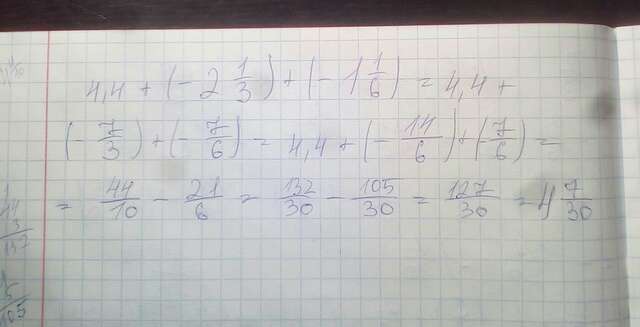 4,4 + (-2 1/3) + (-1 1/6) = 4,4 +
(-7/3) + (-7/6) = 4,4 + (-14/6) + (-7/6) =
= 44/10 - 21/6 = 132/30 - 105/30 = 127/30 = 4 7/30